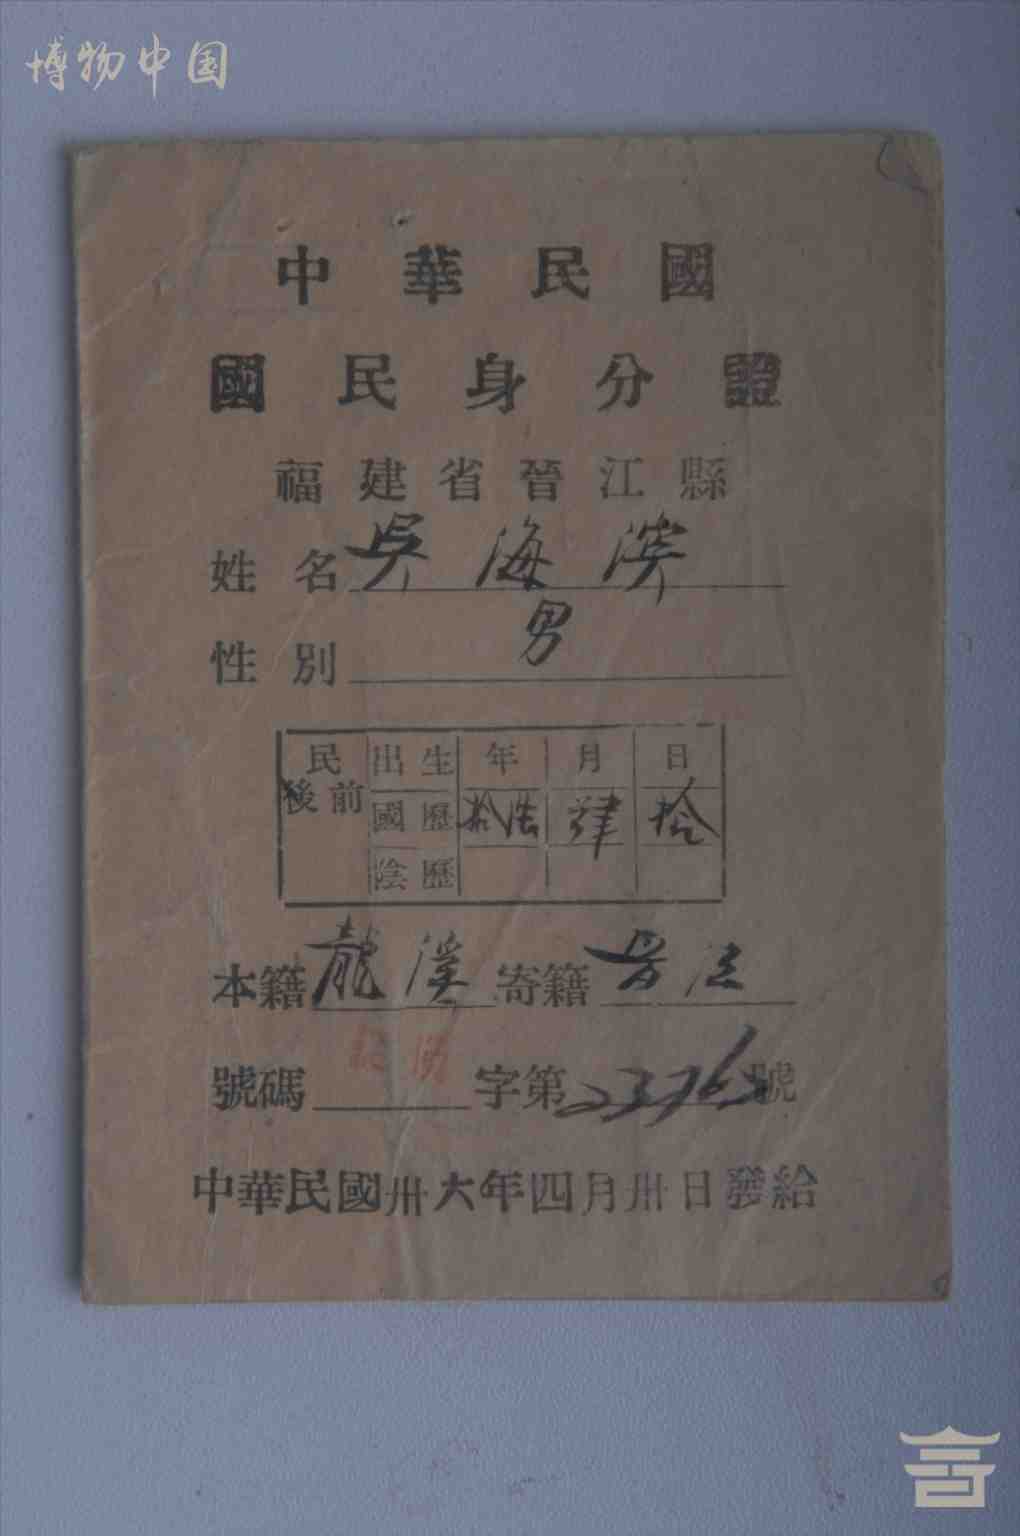 博物中国
中華民國
國民身分證
福建省晉江縣
姓名 吳海濱
性別 男
民 出生 年 月 日
後前 國歷 拾陸 肆 拾
陰歷
本籍 龍溪 寄籍 晉江
號碼 字第23765號
中華民國卅六年四月卅日發給